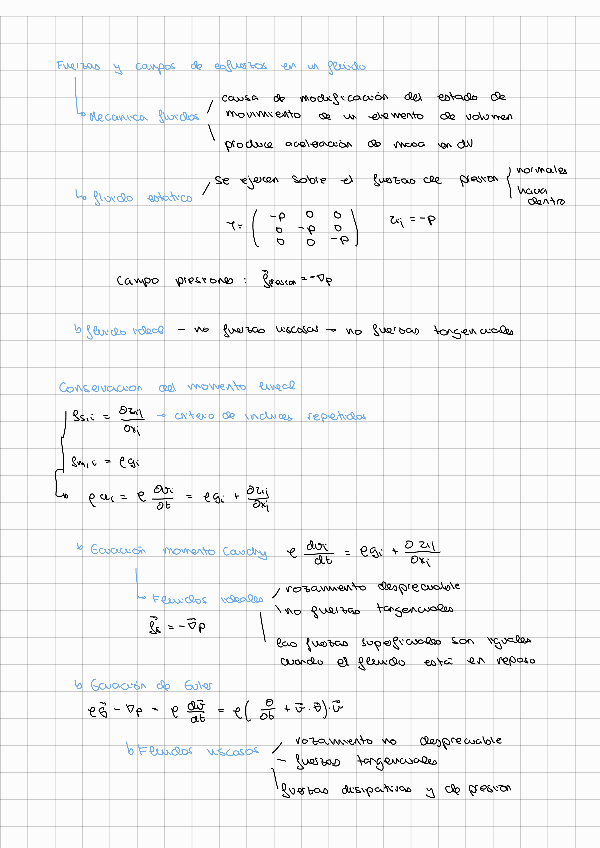 Fuerzas y campos de esfuerzos en un fluido
↳ Mecanica fluidos
causa de modificación del estado de
movimiento de un elemento de volumen
produce aceleración de masa en dV
↳ fluido estatico
se ejercen sobre el fuerzas de presion
normales
hacia
dentro
τ = ( -p 0 0
0 -p 0
0 0 -p )
τij = -p
Campo presiones : f⃗presion = -∇p
↳ fluido ideal – no fuerzas viscosas → no fuerzas tangenciales
Conservacion del momento lineal
fs,i = ∂τij/∂xj → criterio de indices repetidos
fm,i = ρgi
ρai = ρ ∂vi/∂t = ρgi + ∂τij/∂xj
↳ Ecuación momento Cauchy ρ dvi/dt = ρgi + ∂τij/∂xj
↳ Fluidos ideales
rozamiento despreciable
no fuerzas tangenciales
f⃗s = -∇⃗p
las fuerzas superficiales son iguales
cuando el fluido está en reposo
↳ Ecuación de Euler
ρg⃗ - ∇p = ρ dv⃗/dt = ρ( ∂/∂t + v⃗·∇⃗)·v⃗
↳ Fluidos viscosos
rozamiento no despreciable
– fuerzas tangenciales
fuerzas disipativas y de presion